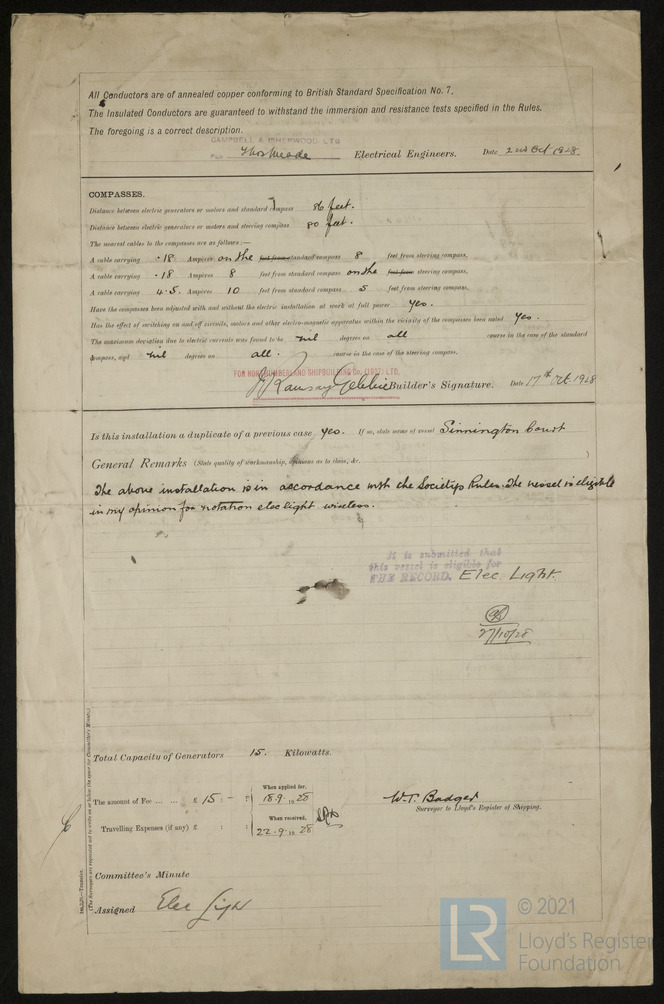 All Conductors are of annealed copper conforming to British Standard Specification No. 7.
The Insulated Conductors are guaranteed to withstand the immersion and resistance tests specified in the Rules.
The foregoing is a correct description.
CAMPBELL & ISHERWOOD LTD
FOR Thos Meade Electrical Engineers. Date 2nd Oct 1928.
COMPASSES.
Distance between electric generators or motors and standard compass 86 feet.
Distance between electric generators or motors and steering compass 80 feet.
The nearest cables to the compasses are as follows:—
A cable carrying .18 Ampères on the feet from standard compass 8 feet from steering compass.
A cable carrying .18 Ampères 8 feet from standard compass on the feet from steering compass.
A cable carrying 4.5 Ampères 10 feet from standard compass 5 feet from steering compass.
Have the compasses been adjusted with and without the electric installation at work at full power Yes.
Has the effect of switching on and off circuits, motors and other electro-magnetic apparatus within the vicinity of the compasses been noted Yes.
The maximum deviation due to electric currents was found to be nil degrees on all course in the case of the standard
compass, and nil degrees on all. course in the case of the steering compass.
FOR NORTHUMBERLAND SHIPBUILDING Co. (1927) LTD.
Ramsay Builder's Signature. Date 17th Oct. 1928
Is this installation a duplicate of a previous case yes. If so, state name of vessel Sinnington Court
General Remarks (State quality of workmanship, opinions as to class, &c. )
The above installation is in accordance with the Societys Rules. The vessel is eligible
in my opinion for notation elec light wireless.
It is submitted that
this vessel is eligible for
THE RECORD. Elec. Light.
27/10/28
Total Capacity of Generators 15. Kilowatts.
The amount of Fee ... ... £ 15 : - : When applied for, 18.9.1928
Travelling Expenses (if any) £ : : When received, 22.9.1928
W.T. Badger
Surveyor to Lloyd's Register of Shipping.
Committee's Minute
Assigned Elec Light
(The Surveyors are requested not to write on or below the space for Committee's Minute.)
LR
© 2021
Lloyd's Register
Foundation